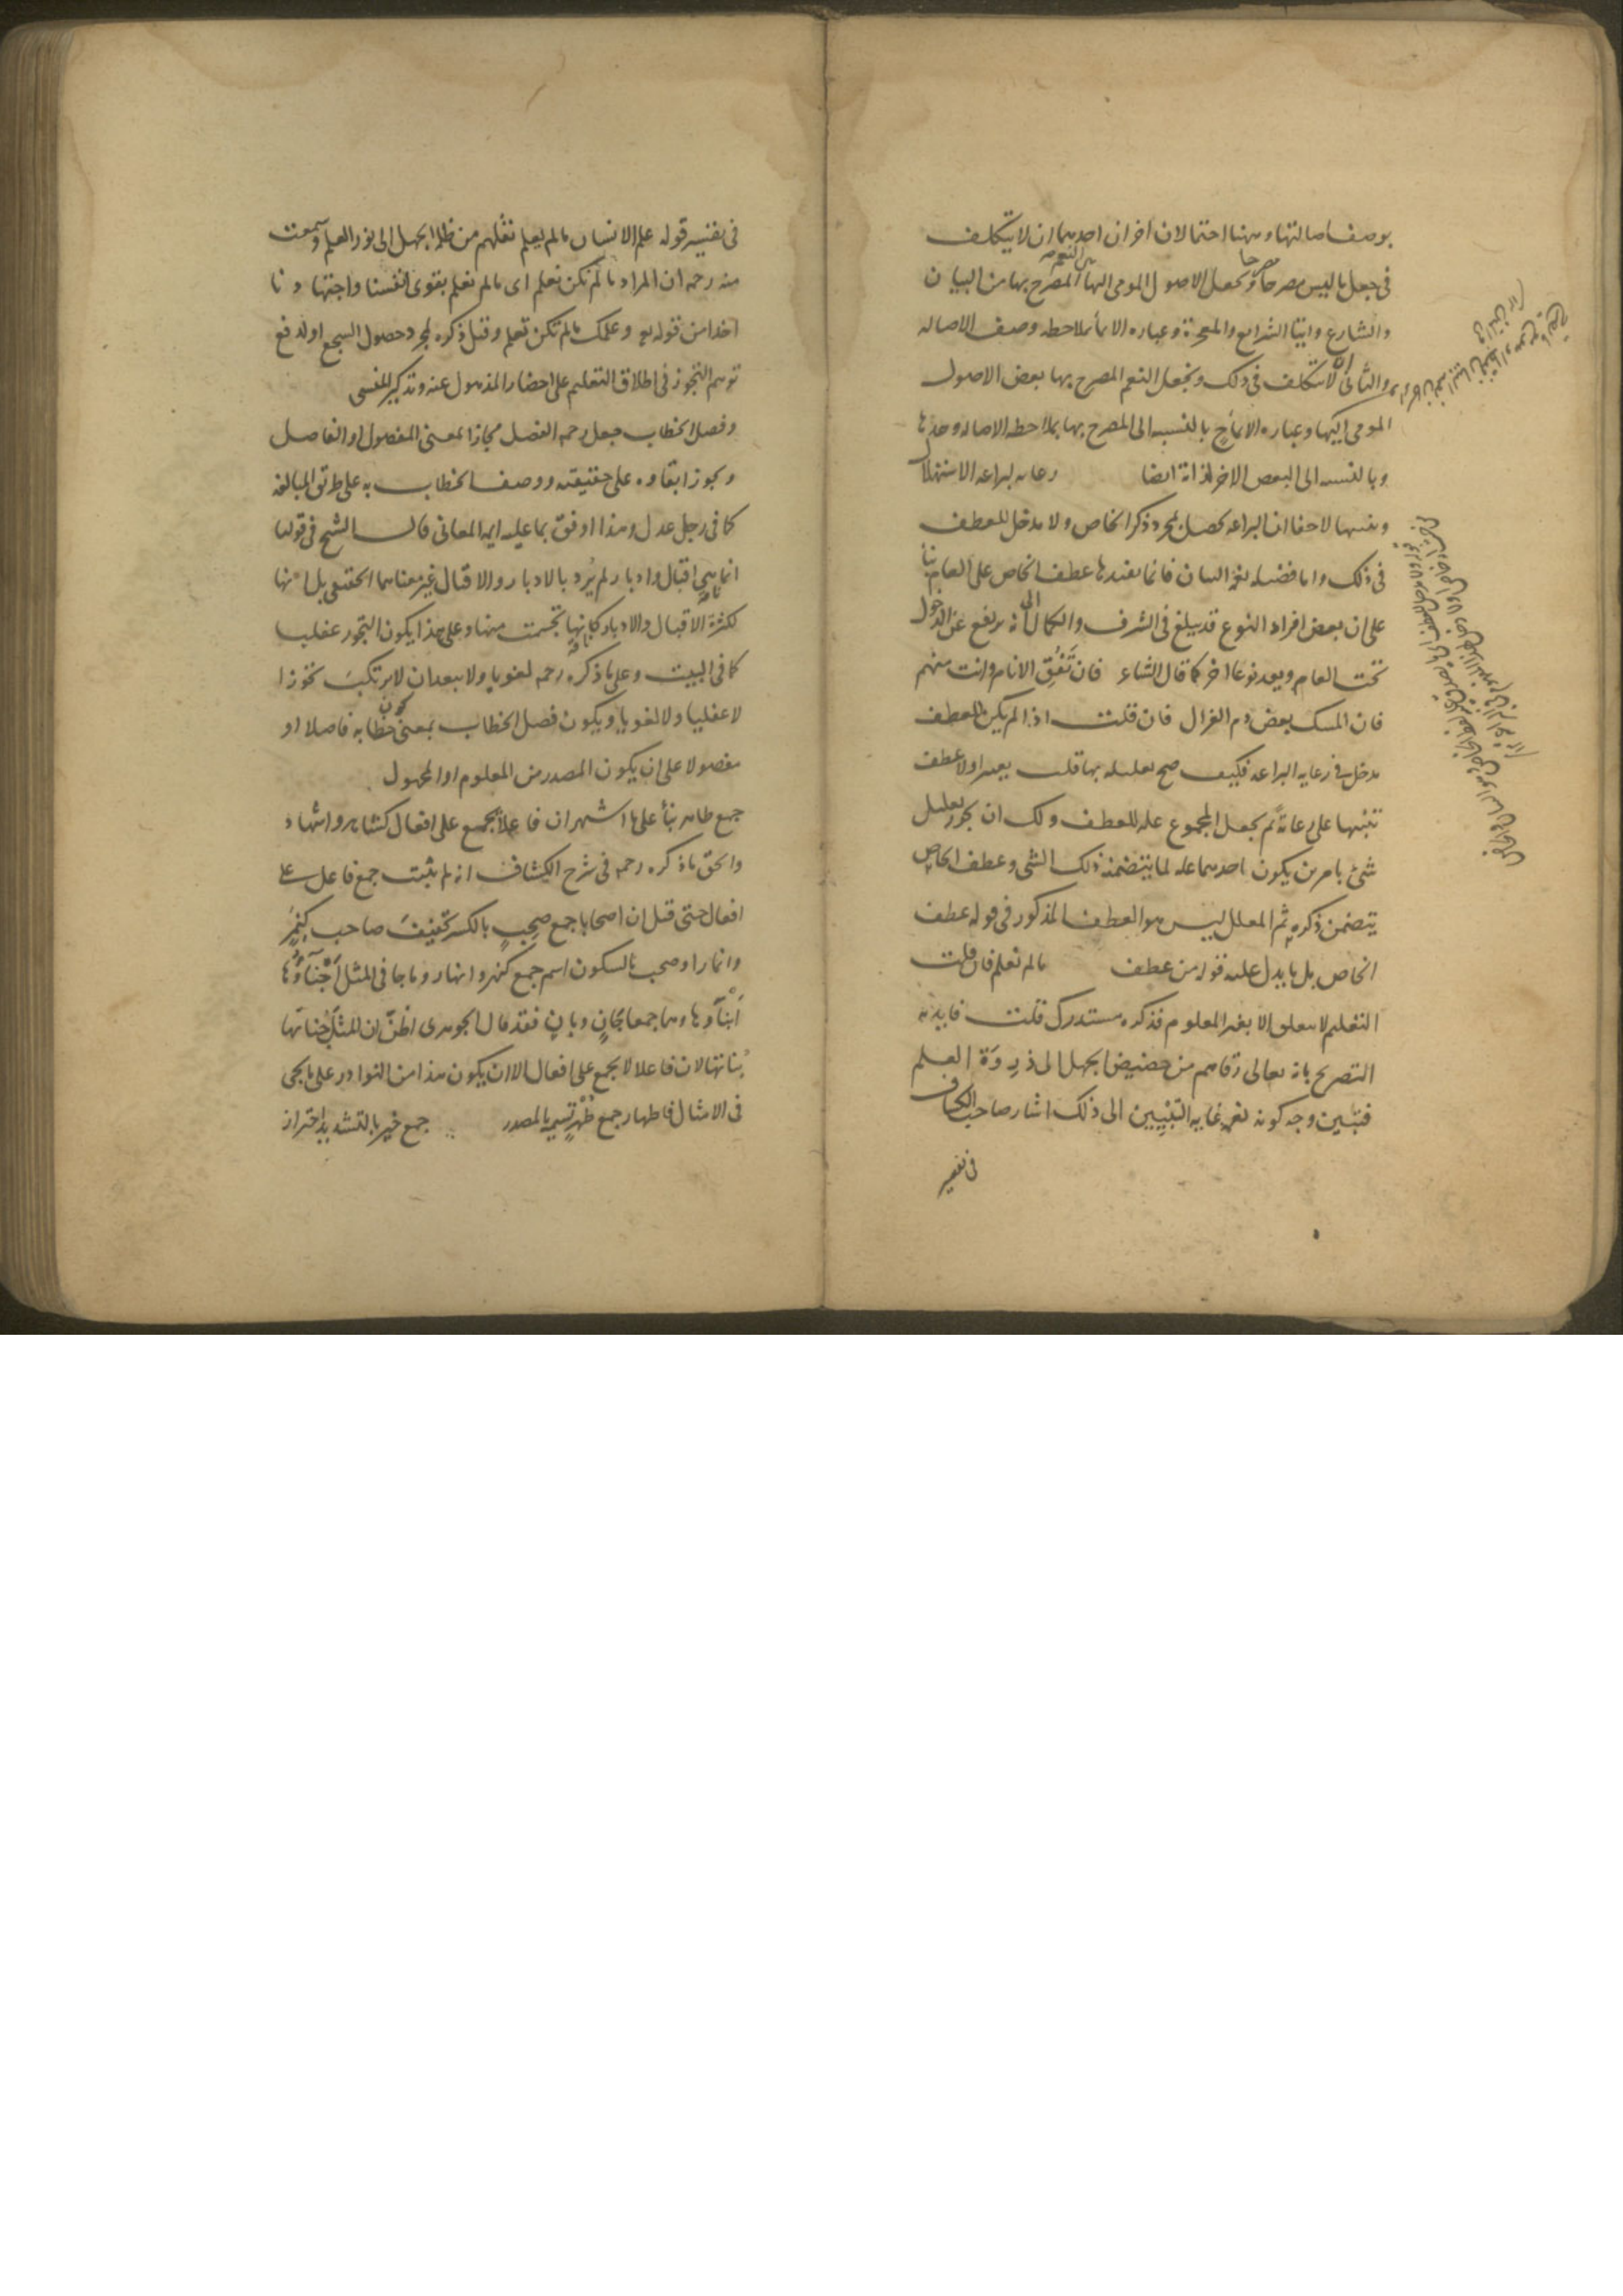 بوصف اصالتها وههنا احتمالان اخران احدهما ان لا يتكلف
في جعل ما ليس مصرحا مصرحا ويجعل الاصول المومى اليها المصرح بها من البيان
من النعم
والشارع وايتا الشرايع والمعجزة وعباره الايما بملاحظه وصف الاصاله
والثاني ان لا يتكلف في ذلك ويجعل النعم المصرح بها بعض الاصول
المومى اليها وعباره الايما ح بالنسبه الى المصرح بها بملاحظه الاصاله وحدها
وبالنسبه الى البعض الاخر لذاته ايضا رعايه لبراعه الاستهلال
وتنبيها لا خفا ان البراعه تحصل بمجرد ذكر الخاص ولا مدخل للعطف
في ذلك واما فضيله نعمه البيان فانما يفيدها عطف الخاص على العام بنا
على ان بعض افراد النوع قد يبلغ في الشرف والكمال الى انه يرفع عن الدخول
تحت العام ويعد نوعا اخر كما قال الشاعر فان تَفُقِ الانام وانت منهم
فان المسك بعض دم الغزال فان قلت اذا لم يكن للعطف
مدخل في رعايه البراعه فكيف صح تعليله بها قلت يعتبر اولا عطف
تنبيها على رعاية ثم يجعل المجموع عله للعطف ولك ان تجوز تعليل
شئ بامرين يكون احدهما عله لما يتضمنه ذلك الشى وعطف الخاص
يتضمن ذكره ثم المعلل ليس هو العطف المذكور في قوله عطف
الخاص بل ما يدل عليه قوله من عطف ما لم نعلم فان قلت
التعليم لا يتعلق الا بغير المعلوم فذكره مستدرك قلت فايدته
التصريح بانه تعالى رقاهم من حضيض الجهل الى ذروة العلم
فتبين وجه كونه نعمه غايه التبيين الى ذلك اشار صاحب الكشاف
في تفسير
في تفسير قوله علم الانسان ما لم يعلم نقلهم من ظلمة الجهل الى نور العلم وسمعت
منه رحمه ان المراد ما لم نكن نعلم اى ما لم نعلم بقوى انفسنا واجتهادنا
اخذا من قوله تع وعلمك ما لم تكن تعلم وقيل ذكره لمجرد حصول السجع او لدفع
توهم التجوز في اطلاق التعليم على احضار المذهول عنه وتذكير المنسى
وفصل الخطاب جعل رحمه الفصل مجازا بمعنى المفصول او الفاصل
ويجوز ابقاوه على حقيقته ووصف الخطاب به على طريق المبالغه
كما في رجل عدل وهذا اوفق بما عليه ايمه المعاني قال الشيخ في قولها
فانما هي اقبال وادبار لم يُرد بالادبار والاقبال غير معناهما الحقيقي بل انها
لكثرة الاقبال والادبار كانها تجسمت منها وعلى هذا يكون التجوز عقليا
كما في البيت وعلى ما ذكره رحمه لغويا ولا يبعد ان لا يرتكب تجوزا
لا عقليا ولا لغويا ويكون فصل الخطاب بمعنى كون خطابه فاصلا او
مفصولا على ان يكون المصدر من المعلوم او المجهول
جمع طاهر بنأ على ما اشتهر ان فاعلا يجمع على افعال كشاهد واشهاد
والحق ما ذكره رحمه في شرح الكشاف انه لم يثبت جمع فاعل على
افعال حتى قيل ان اصحابا جمع صَحِبٍ بالكسر تخفيف صاحب كنَمِرٍ
وانمار او صحب بالسكون اسم جمع كنهر وانهار وما جا في المثل اَجْنآوُها
اَبْنآوها وهما جمعا جانٍ وبانٍ فقد قال الجوهرى اظنّ ان المثل جُناتها
بُناتها لان فاعلا لا يجمع على افعال الا ان يكون هذا من النوادر على ما يجى
في الامثال فاطهار جمع طُهْرٍ تسميه بالمصدر جمع خير بالتشديد احترازا